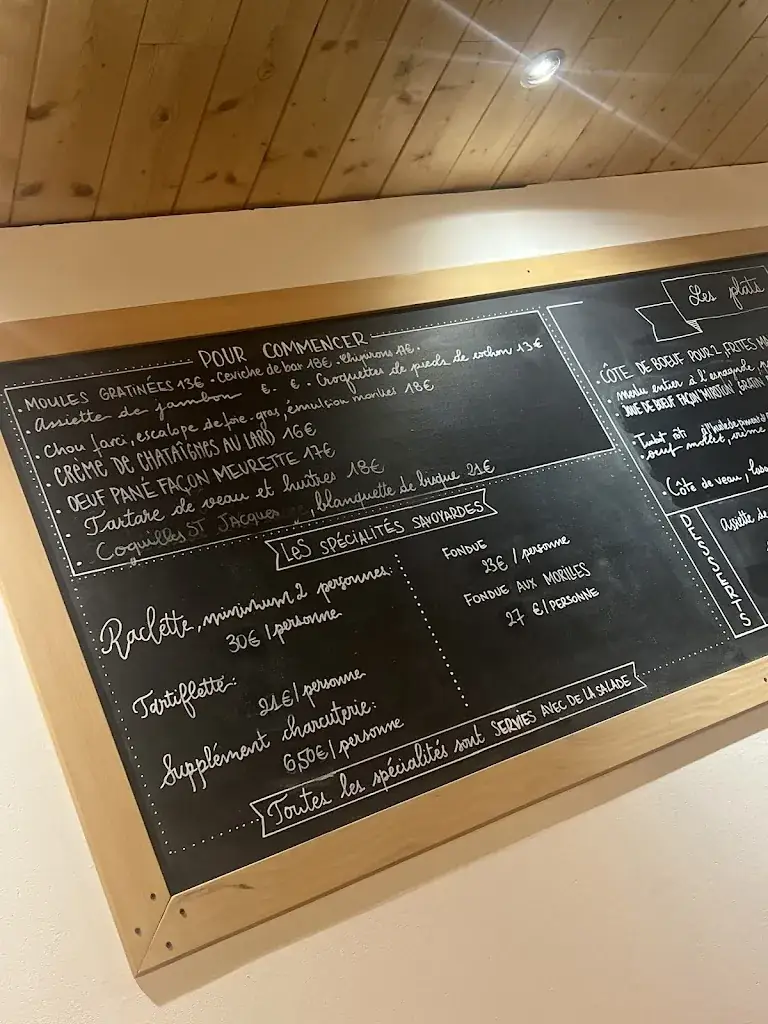 POUR COMMENCER
• MOULES GRATINÉES 13€ • Ceviche de bar 18€ • Chipirons 17€ •
• Assiette de jambon € • € • Croquettes de pieds de cochon 13€
• Chou farci, escalope de foie-gras, émulsion morilles 18€
• CREME DE CHATAÎGNES AU LARD 16€
• OEUF PANÉ FAÇON MEURETTE 17€
• Tartare de veau et huîtres 18€
• Coquilles ST Jacques, blanquette de bisque 21€
LES SPÉCIALITÉS SAVOYARDES
Raclette, minimum 2 personnes:
30€/personne
Tartiflette:
21€/personne
Supplément charcuterie:
6,50€/personne
FONDUE
23€/personne
FONDUE AUX MORILLES
27 €/PERSONNE
Toutes les spécialités sont SERVIES AVEC DE LA SALADE
Les plats
• CÔTE DE BOEUF POUR 2, FRITES
merlu entier à l'espagnole,
• JOUE DE BOEUF FAÇON
Turbot rôti
• oeuf mollet, crème
• Côte de veau,
DESSERTS
Assiette de